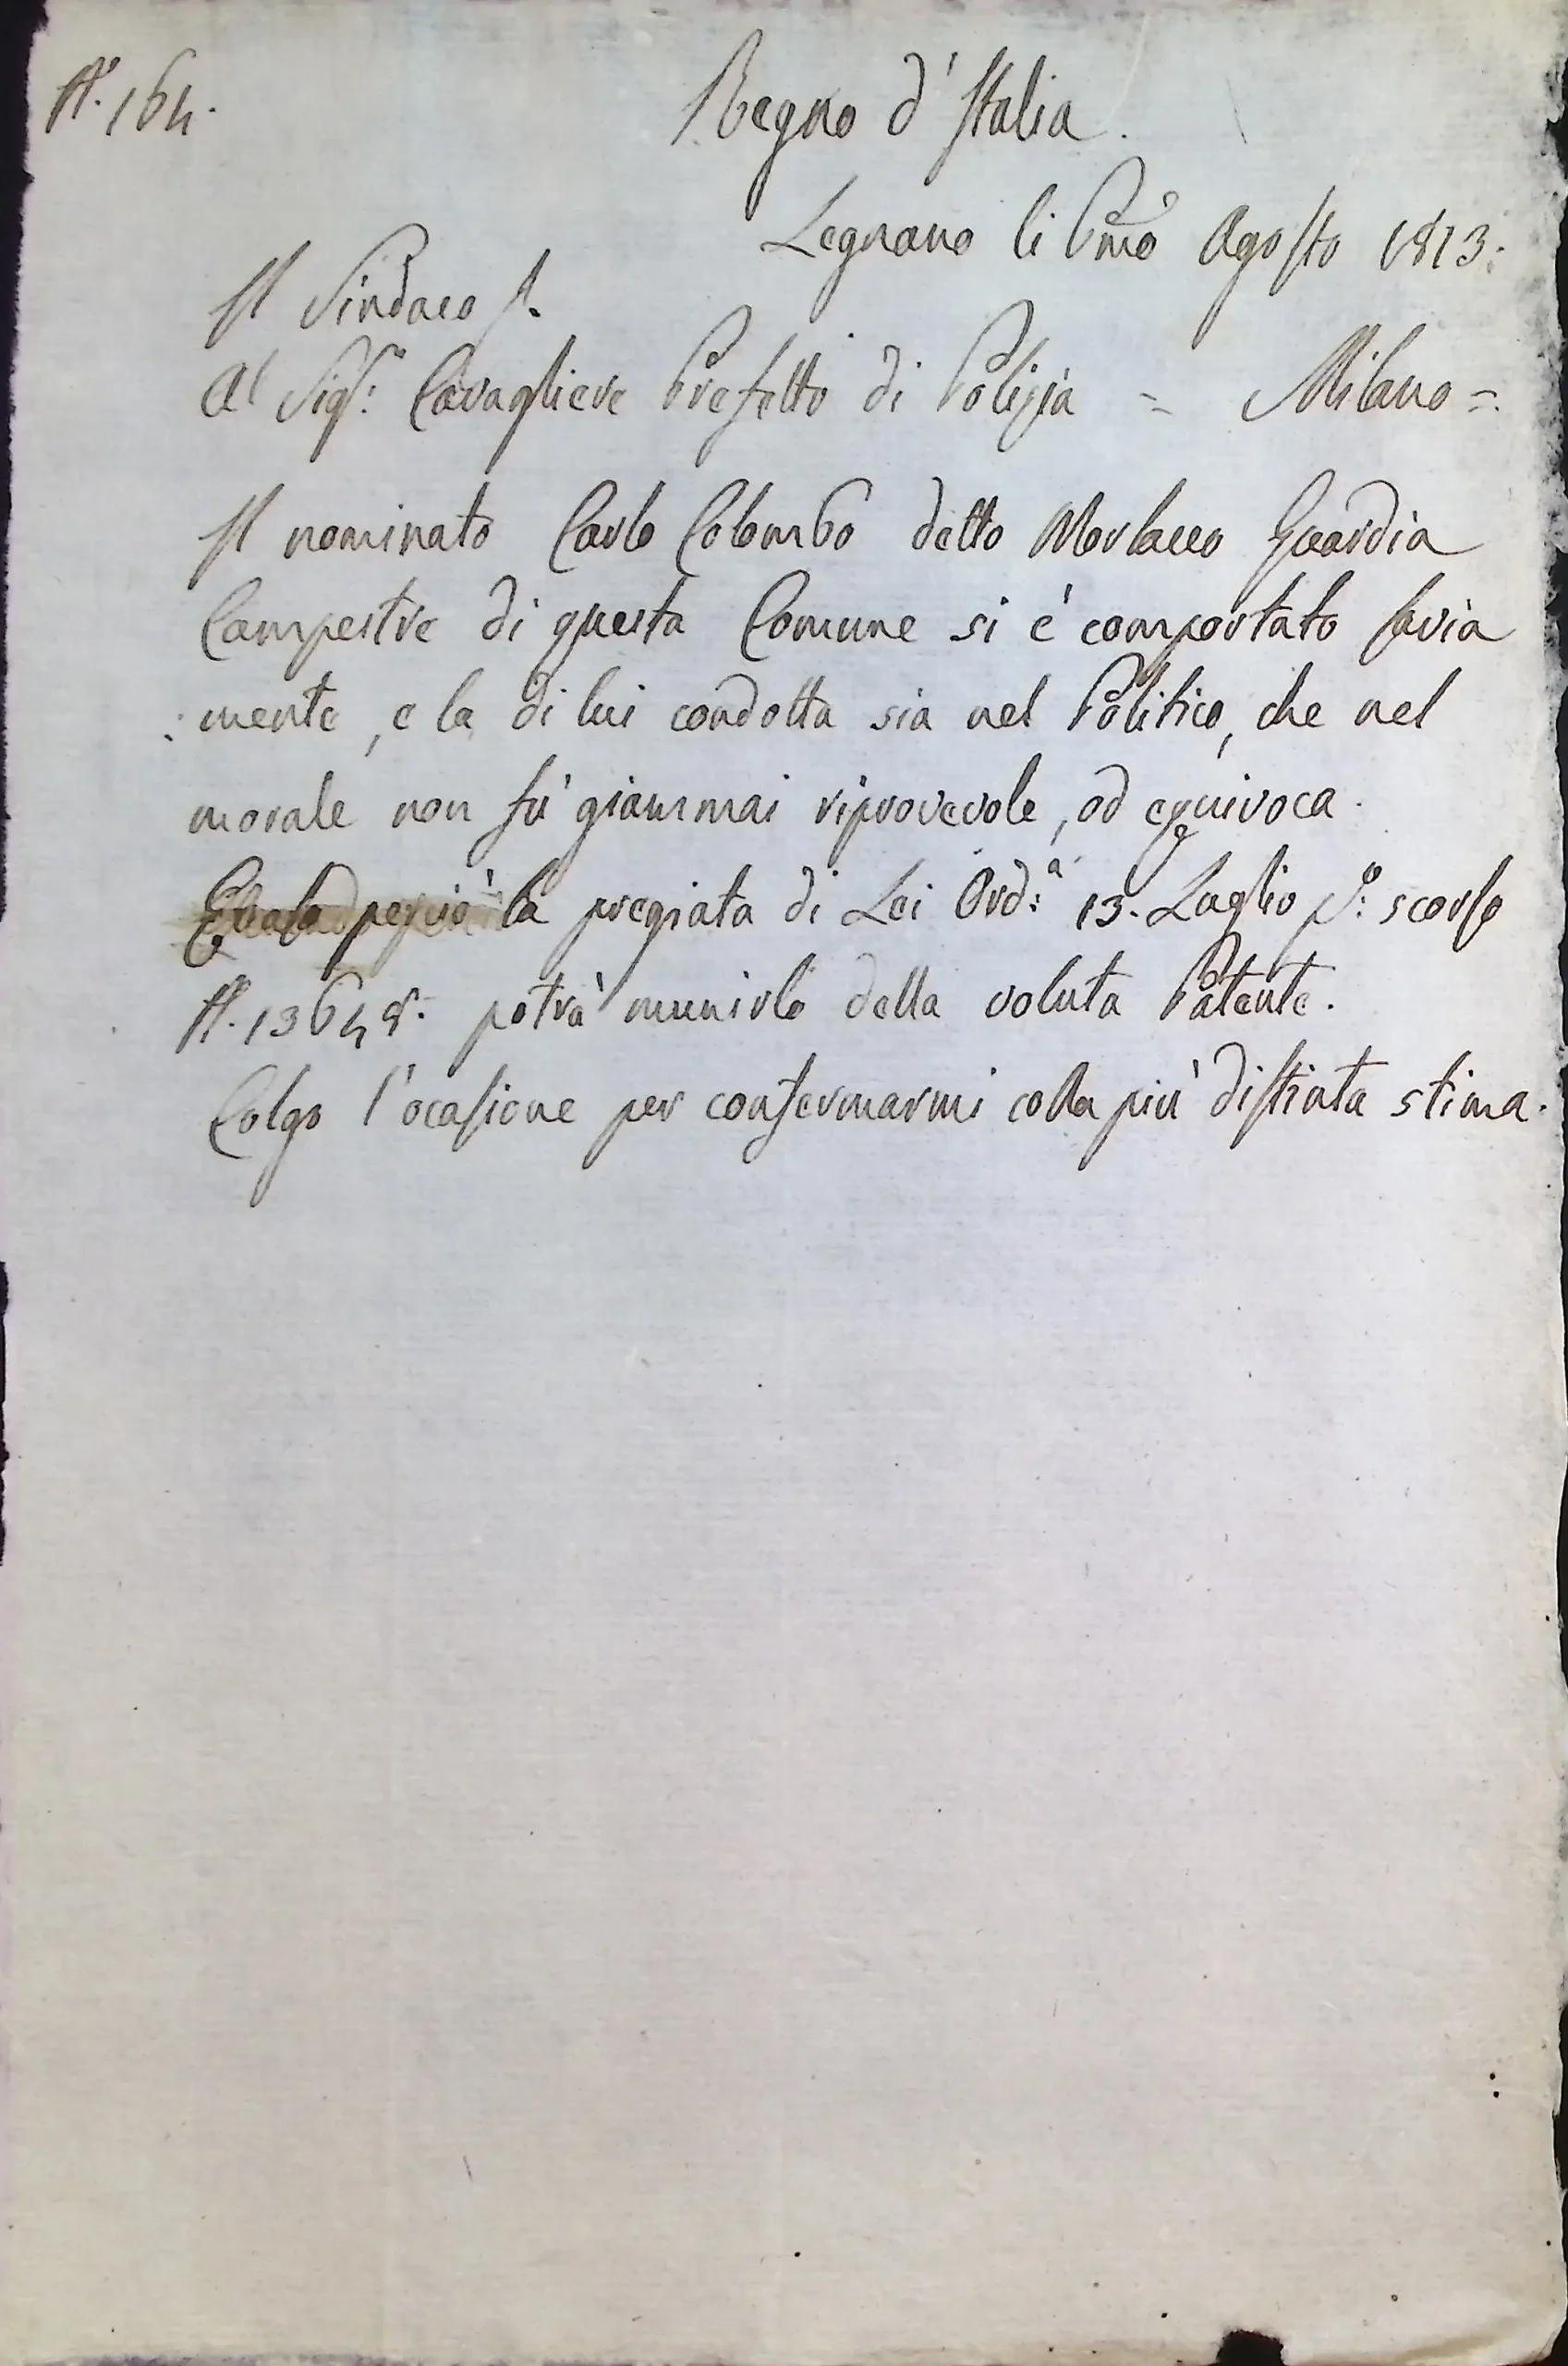 N.° 164.
Regno d'Italia.
Legnano li Pmo Agosto 1813.
Il Sindaco
Al Sigr: Cavagliere Prefetto di Polizia = Milano =
Il nominato Carlo Colombo detto Morlacco Guardia
Campestre di questa Comune si è comportato savia
: mente, e la di lui condotta sia nel Politico, che nel
morale non fù giammai riprovevole, od equivoca.
perciò la pregiata di Lei Ord:a 13. Luglio p:° scorso
N.° 13648. potrà munirlo della voluta Patente.
Colgo l'ocasione per confermarmi colla più distinta stima.